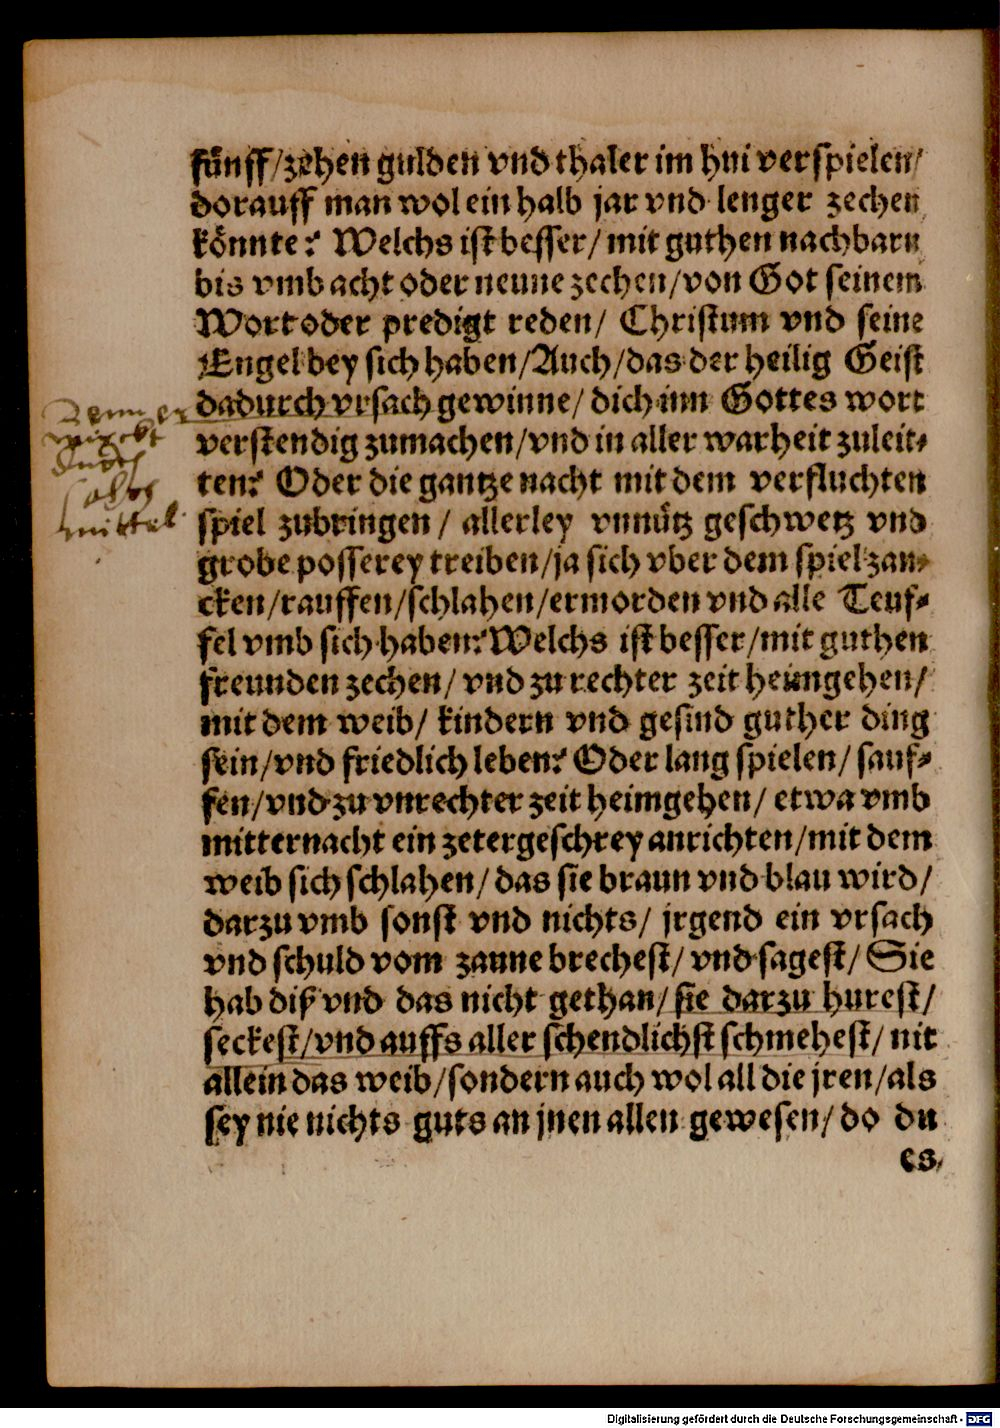 fünff/zehen gulden vnd thaler im hui verspielen/
dorauff man wol ein halb jar vnd lenger zechen
könnte? Welchs ist besser/ mit guthen nachbarn
bis vmb acht oder neune zechen/von Got seinem
Wort oder predigt reden/ Christum vnd seine
Engel bey sich haben/Auch/das der heilig Geist
dadurch vrsach gewinne/ dich inn Gottes wort
verstendig zumachen/vnd in aller warheit zuleit-
ten? Oder die gantze nacht mit dem verfluchten
spiel zubringen/ allerley vnnütz geschwetz vnd
grobe posserey treiben/ja sich vber dem spiel zan-
cken/rauffen/schlahen/ermorden vnd alle Teuf-
fel vmb sich haben? Welchs ist besser/mit guthen
freunden zechen/ vnd zu rechter zeit heimgehen/
mit dem weib/ kindern vnd gesind guther ding
sein/vnd friedlich leben? Oder lang spielen/ sauf-
fen/vnd zu vnrechter zeit heimgehen/ etwa vmb
mitternacht ein zetergeschrey anrichten/mit dem
weib sich schlahen/ das sie braun vnd blau wird/
darzu vmb sonst vnd nichts/ jrgend ein vrsach
vnd schuld vom zaune brechest/ vnd sagest/ Sie
hab diß vnd das nicht gethan/ sie darzu hurest/
seckest/vnd auffs aller schendlichst schmehest/ nit
allein das weib/sondern auch wol all die jren/als
sey nie nichts guts an jnen allen gewesen/ do du
es
Denn er
wirckt
durch
solch
mittel
Digitalisierung gefördert durch die Deutsche Forschungsgemeinschaft - DFG